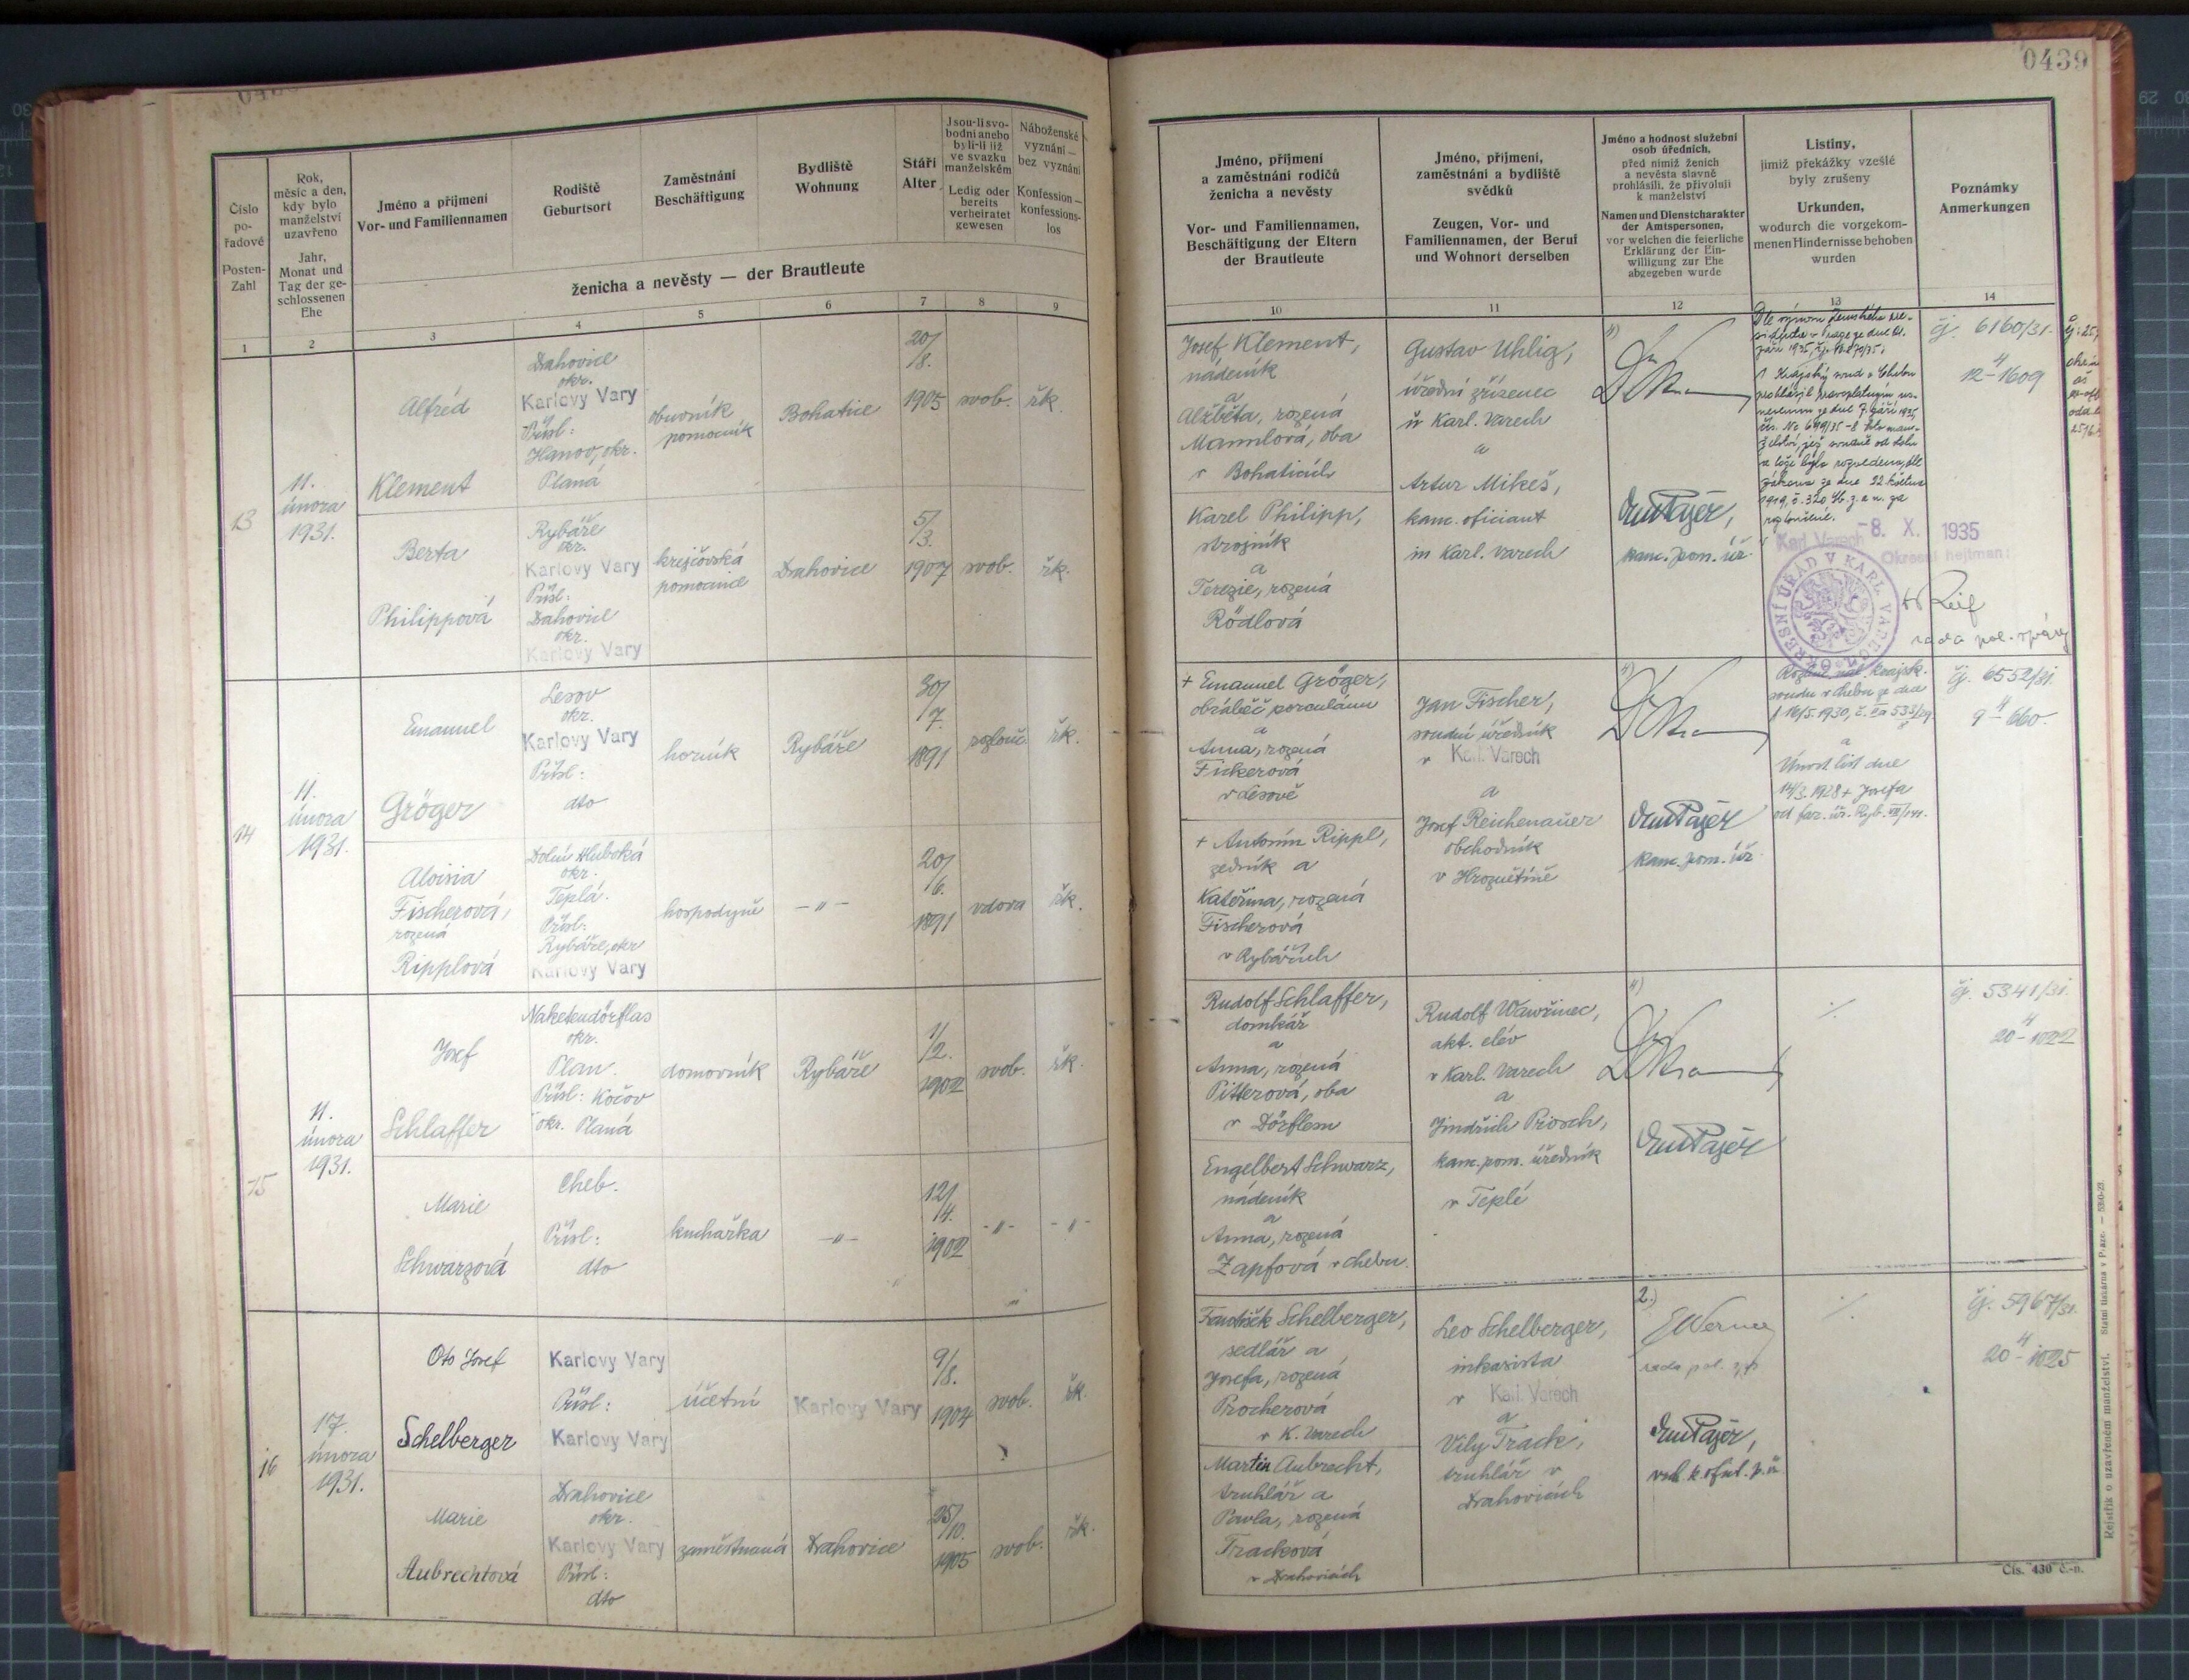 0439
Číslo
po-
řadové
Posten-
Zahl
Rok,
měsíc a den,
kdy bylo
manželství
uzavřeno
Jahr,
Monat und
Tag der ge-
schlossenen
Ehe
Jméno a příjmení
Vor- und Familiennamen
Rodiště
Geburtsort
Zaměstnání
Beschäftigung
Bydliště
Wohnung
Stáří
Alter
Jsou-li svo-
bodni anebo
byli-li již
ve svazku
manželském
Ledig oder
bereits
verheiratet
gewesen
Náboženské
vyznání —
bez vyznání
Konfession —
konfessions-
los
ženicha a nevěsty — der Brautleute
1 2 3 4 5 6 7 8 9
13
11.
února
1931.
Alfréd
Klement
Drahovice
okr.
Karlovy Vary
Přísl:
Hanov, okr.
Planá
obuvník
pomocník
Bohatice
20/
8.
1905
svob.
řk.
Berta
Philippová
Rybáře
okr.
Karlovy Vary
Přísl:
Drahovice
okr.
Karlovy Vary
krejčovská
pomocnice
Drahovice
5/
3.
1907
svob.
řk.
14
11.
února
1931.
Emanuel
Gröger
Lesov
okr.
Karlovy Vary
Přísl:
dto
horník
Rybáře
30/
7.
1891
rozlouč.
řk.
Aloisia
Fischerová,
rozená
Ripplová
Dolní Hluboká
okr.
Teplá.
Přísl:
Rybáře, okr
Karlovy Vary
hospodyně
-"-
20/
6.
1891
vdova
řk.
15
11.
února
1931.
Josef
Schlaffer
okr.
Plan.
Přísl: Kočov
okr. Planá
domovník
Rybáře
1/
2.
1902
svob.
řk.
Marie
Schwarzová
Cheb.
Přísl:
dto
kuchařka
-"-
12/
4.
1902
-"-
-"-
16
17.
února
1931.
Oto Josef
Schelberger
Karlovy Vary
Přísl:
Karlovy Vary
účetní
Karlovy Vary
9/
8.
1904
svob.
řk.
Marie
Aubrechtová
Drahovice
okr.
Karlovy Vary
Přísl:
dto
zaměstnaná
Drahovice
25/
10.
1905
svob.
řk.
Jméno, příjmení
a zaměstnání rodičů
ženicha a nevěsty
Vor- und Familiennamen,
Beschäftigung der Eltern
der Brautleute
Jméno, příjmení,
zaměstnání a bydliště
svědků
Zeugen, Vor- und
Familiennamen, der Beruf
und Wohnort derselben
Jméno a hodnost služební
osob úředních,
před nimiž ženich
a nevěsta slavně
prohlásili, že přivolují
k manželství
Namen und Dienstcharakter
der Amtspersonen,
vor welchen die feierliche
Erklärung der Ein-
willigung zur Ehe
abgegeben wurde
Listiny,
jimiž překážky vzešlé
byly zrušeny
Urkunden,
wodurch die vorgekom-
menen Hindernisse behoben
wurden
Poznámky
Anmerkungen
10 11 12 13 14
Josef Klement,
nádeník
a
Alžběta, rozená
Mannlová, oba
v Bohaticích
Karel Philipp,
strojník
a
Terezie, rozená
Rödlová
Gustav Uhlig,
úřední zřízenec
v Karl. Varech
a
Artur Mikeš,
kanc. oficiant
in Karl. Varech
kanc. pom. úř.
Krajský soud v Chebu
1919, č. 320 Sb. z. a n. za
rozloučené.
Karl. Varech -8. X. 1935
Okresní hejtman:
OKRESNÍ ÚŘAD V KARL. VARECH
rada pol. správy
čj. 6160/31.
4
12-1609
+ Emanuel Gröger,
a
Anna, rozená
Fickerová
v Lesově
+ Antonín Rippl,
zedník a
Kateřina, rozená
Fischerová
v Rybářích
Jan Fischer,
soudní úředník
v Karl. Varech
a
Josef Reichenauer
obchodník
v Hroznětíně
kanc. pom. úř.
soudu v Chebu ze dne
a
Úmrt. list dne
14/3. 1928 + Josefa
čj. 6552/31
4
9-660.
Rudolf Schlaffer,
domkář
a
Anna, rozená
Pitterová, oba
v Dörflem
Engelbert Schwarz,
nádeník
a
Anna, rozená
Zapfová v Chebu.
Rudolf Wawřinec,
akt. elév
v Karl. Varech
a
Jindřich Prosch,
kanc. pom. úředník
v Teplé
čj. 5341/31.
4
20-1022
František Schelberger,
sedlář a
Josefa, rozená
Procherová
v K. Varech
Martin Aubrecht,
truhlář a
Pavla, rozená
Tracková
v Drahovicích
Leo Schelberger,
inkasista
v Karl. Varech
a
Vily Track,
truhlář v
Drahovicích
2.)
čj. 5967/31.
4
20-1025
Rejstřík o uzavřeném manželství. Státní tiskárna v Praze.
Čís. 430 č.-n.